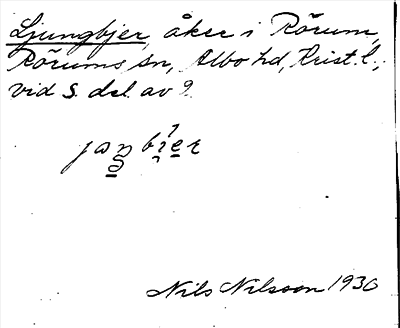 Ljungbjer, åker i Rörum,
Rörums sn, Albo hd, Krist. l.,
vid S. del av 9.
Nils Nilsson 1930